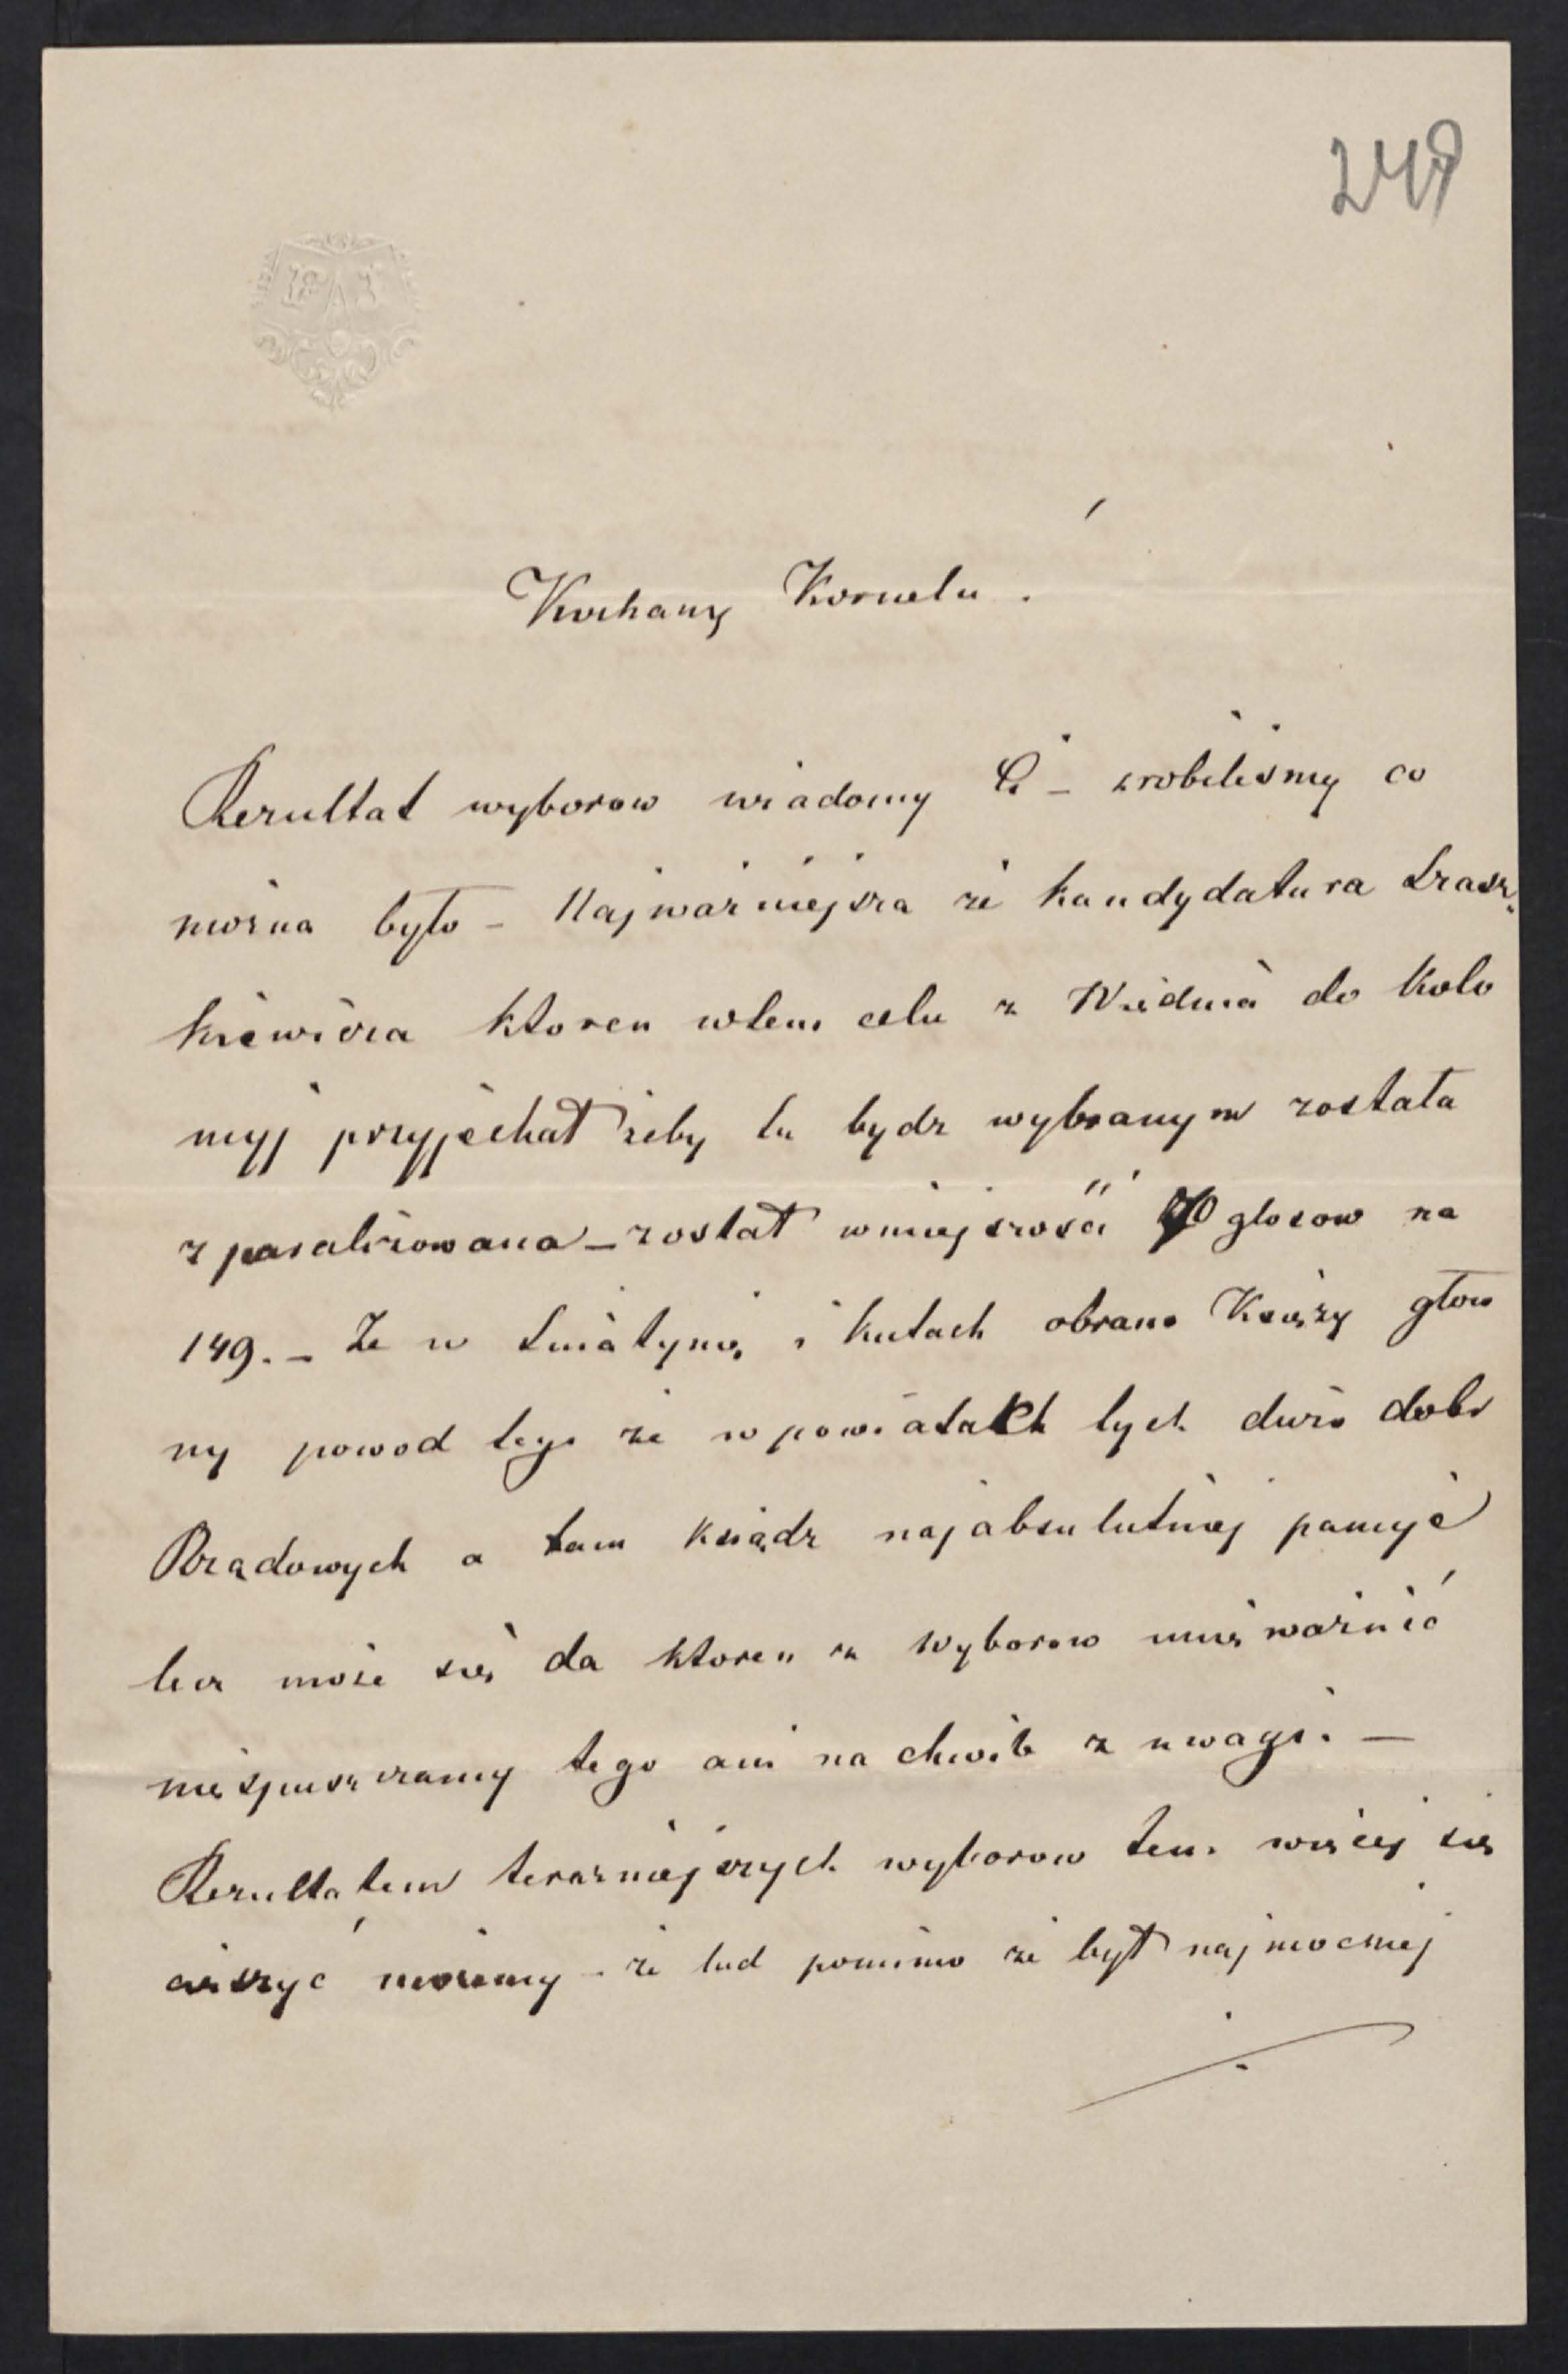 249
Kochany Kornelu.
Rezultat wyborow wiadomy Ci – zrobiliśmy co
można było – Najważniejsza że kandydatura Łrasz„
kiewicza ktoren wtem celu z Wiednia do Koło
myj przyjechał żeby tu bydz wybranym została
zparalizowana – został wmiejszości 70 glosow na
149. – Że w Sniatynie i Kutach obrano Księży głow
ny powod tego że w powiatach tych dużo dobr
Rządowych a tam Ksiądz najabsulutniej panuje
lecz może się da ktoren z wyborow unieważnić
niespuszczamy tego ani na chwile z uwagi. –
Rezultatem teraźniejszych wyborow tem więcej się
cieszyć możemy – że lud pomimo że był najmocniej